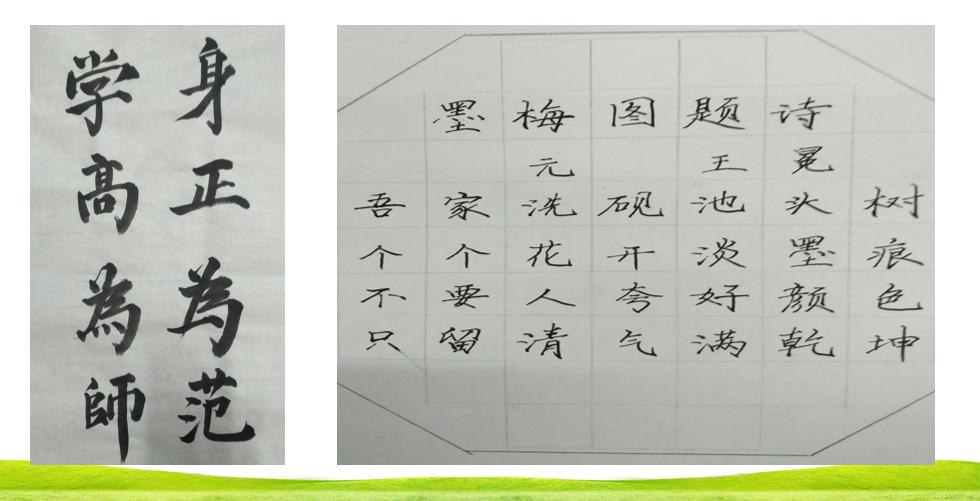 学高為師
身正為范
墨梅图题诗
元 王冕
吾家洗砚池头树
个个花开淡墨痕
不要人夸好颜色
只留清气满乾坤